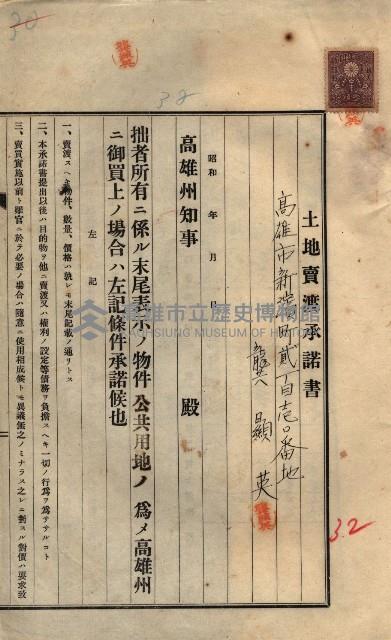 土地賣渡承諾書
高雄市新濱町貳百壱〇番地
龔顯英
昭和　年　月　日
高雄州知事　殿
拙者所有ニ係ル末尾表示ノ物件公共用地ノ爲メ高雄州
ニ御買上ノ場合ハ左記條件承諾候也
左記
一、賣渡スヘキ物件、數量、價格ハ孰レモ末尾記載ノ通リトス
二、本承諾書提出以後ハ目的物ヲ他ニ賣渡又ハ權利ノ設定等債務ヲ負擔スヘキ一切ノ行爲ヲ爲ササルコト
三、賣買實施以前ト雖官ニ於テ必要ノ場合ハ隨意ニ使用相成候トモ異議無之ノミナラス之レニ對スル對價ハ要求致
30
32
32
高雄市立歷史博物館
KAOHSIUNG MUSEUM OF HISTORY